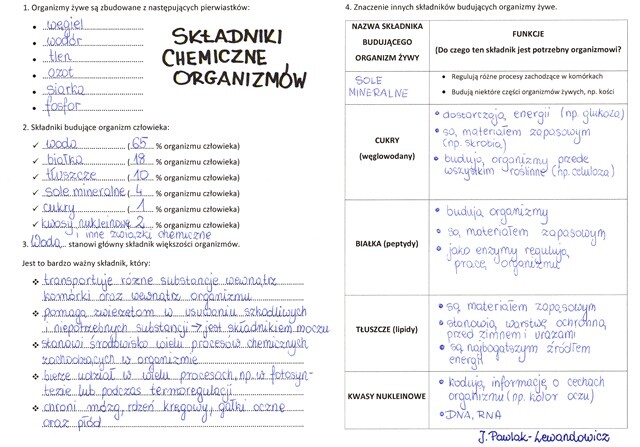 1. Organizmy żywe są zbudowane z następujących pierwiastków:
• węgiel
• wodór
• tlen
• azot
• siarka
• fosfor
SKŁADNIKI
CHEMICZNE
ORGANIZMÓW
2. Składniki budujące organizm człowieka:
✓ woda (65 % organizmu człowieka)
✓ białka (18 % organizmu człowieka)
✓ tłuszcze (10 % organizmu człowieka)
✓ sole mineralne (4 % organizmu człowieka)
✓ cukry (1 % organizmu człowieka)
✓ kwasy nukleinowe 2 % organizmu człowieka)
i inne związki chemiczne
3. Woda stanowi główny składnik większości organizmów.
Jest to bardzo ważny składnik, który:
❖ transportuje różne substancje wewnątrz
komórki oraz wewnątrz organizmu
❖ pomaga zwierzętom w usuwaniu szkodliwych
i niepotrzebnych substancji → jest składnikiem moczu
❖ stanowi środowisko wielu procesów chemicznych
zachodzących w organizmie
❖ bierze udział w wielu procesach, np. w fotosyn-
tezie lub podczas termoregulacji
❖ chroni mózg, rdzeń kręgowy, gałki oczne
oraz płód
4. Znaczenie innych składników budujących organizmy żywe.
NAZWA SKŁADNIKA
BUDUJĄCEGO
ORGANIZM ŻYWY
FUNKCJE
(Do czego ten składnik jest potrzebny organizmowi?)
SOLE
MINERALNE
• Regulują różne procesy zachodzące w komórkach
• Budują niektóre części organizmów żywych, np. kości
CUKRY
(węglowodany)
• dostarczają energii (np. glukoza)
• są materiałem zapasowym
(np. skrobia)
• budują organizmy przede
wszystkim roślinne (np. celuloza)
BIAŁKA (peptydy)
• budują organizmy
• są materiałem zapasowym
• jako enzymy regulują
pracę organizmu
TŁUSZCZE (lipidy)
• są materiałem zapasowym
• stanowią warstwę ochronną
przed zimnem i urazami
• są najbogatszym źródłem
energii
KWASY NUKLEINOWE
• kodują informację o cechach
organizmu (np. kolor oczu)
• DNA, RNA
J. Pawlak-Lewandowicz